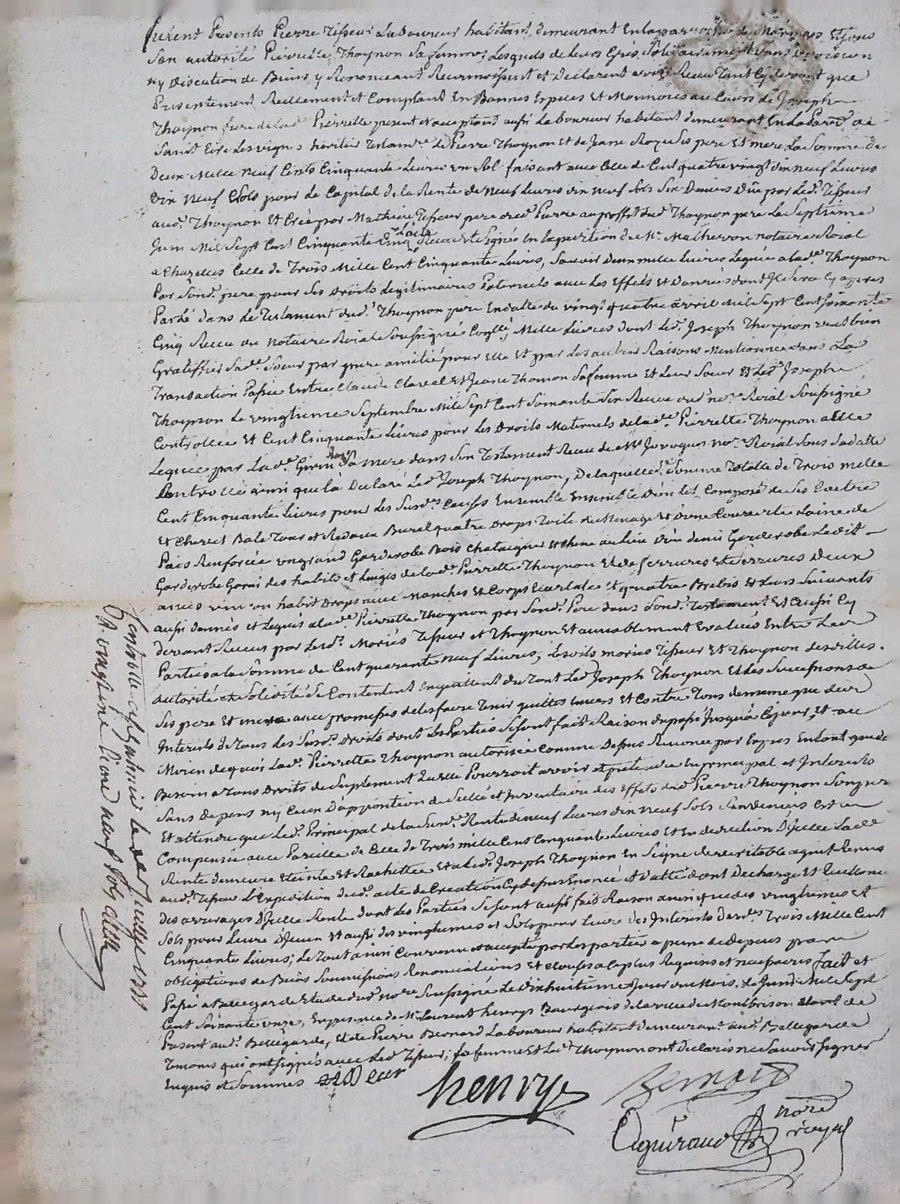 furent Presents Pierre Tisseur Laboureur habitant, demeurant En la paroisse de
Son autorité Pierrette Thoynon Sa femme, Lesquels de Leurs Grés, Solidairement Sans division
ny Discution de Biens y Renonceant Reconnoissent et Declarent avoir Receu Tant Cy devant que
Presentement Reellement et Comptant En Bonnes Especes Et Monnoies au Cours de Joseph
Thoynon frere de lade Pierrette present et acceptant aussi Laboureur habitant demeurant En La Parre de
Saint Cire Les vignes héritier Testamre de Pierre Thoynon et de Jeane Ses pere Et mere La Somme de
Deux Mille Neuf Cents Cinquante Livres En Sol faisant avec Celle de Cent quatre vingt dix neuf Livres
Dix Neuf Sols pour Le Capital de La Rente de Neuf Livres dix neuf Sols Six Deniers Düe par Led. Tisseur
aud. Thoynon Et Créé par Mathieu Tisseur pere dud. Pierre au proffit dud. Thoynon pere Le Septieme
Juin Mil Sept Cent Cinquante Cinq Receu Et Signé En Expedition de Me. Mathevon notaire Roial
a Chazelles Celle de Trois Mille Cent Cinquante Livres, Savoir Deux mille Livres Leguée a lade. Thoynon
Par Sond. pere pour Ses Droits Legitimaires Paternels avec Les Effets et Danrés dont Il Sera Cy apres
Parlé dans Le Testament dud. Thoynon pere En datte du vingt quatre avril mil Sept Cent Soixante
Cinq Receu du Notaire Roial Soussigné Mille Livres dont Led. Joseph Thoynon veut bien
Gratiffier Sade. Soeur par pure amitié pour Elle Et par Les autres Raisons Mentionnée dans La
Transaction Passée Entre Claude Clavel Et Jeane Thoinon Sa femme Et Leur Soeur Et Led. Joseph
Thoynon Le vingtieme Septembre Mil Sept Cent Soixante Six Receue dud. nore Roial Soussigné
Controllée Et Cent Cinquante Livres pour Les Droits Maternels de lade. Pierrette Thoynon a Elle
Leguée par Lade. Sa mere dans Son Testament Receu de Me. nore Roial Sous Sa datte
Controllé ainsi que l'a Declaré Led. Joseph Thoynon, De laquelle de Somme Totalle de Trois mille
Cent Cinquante Livres pour Les Susd. Causes Ensemble d'un Lit Composé de Ses quatre
Et Chevet Bale Tour et Rideaux quatre Draps Toile de Menage Et d'une Couverte Laine de
Païs Renforcée un grand Garderobe Bois Chataigne et Chêne au Lieu d'un demi Garderobe Ledit
Garderobe Garni des habits et Linges de lade. Pierrette Thoynon Et de Ses ferrures et Serrures Deux
anées vin un habit Draps avec Manches et Corps Ecarlate Et quatre Brebis Et Leurs Suivants
aussi Donnés et Legués a lade. Pierrette Thoynon par Sond. Pere dans Sond. Testament Et aussi Cy
devant Receus par Lesd. Mariés Tisseur et Thoynon Et amiablement Evalués Entre Les
Parties a la Somme de Cent quarante Neuf Livres, Lesdits mariés Tisseur Et Thoynon Desdittes
autorité et Solidité Se Contentent En quittent du Tout Led. Joseph Thoynon Et les Successions de
Ses pere Et mere avec promesses de les faire Tenir quittes Envers et Contre Tous de meme que des
Interets de Tous Les Susd. Droits dont Les Parties Se Sont fait Raison du passé Jusqu'a Ce Jour, Et au
Moien de quoi Lade. Pierrette Thoynon autorisée Comme Dessus Renonce par Exprès En tant que de
Besoin a Tous Droits de Suplement qu'Elle Pourroit avoir et pretendre En principal et Interets
Sans Depens ny aucun D'apposition de Scellé et Inventaire des Effets dud. Pierre Thoynon Son pere
Et attendu que Led. Principal de La Susd. Rente de Neuf Livres dix neuf Sols Six deniers Est
Compensé avec Pareille de Celle de Trois mille Cent Cinquante Livres Et En deduction D'icelle Lade.
Rente demeure Eteinte Et Rachettée Et a Led. Joseph Thoynon En Signe de veritable aquit Remis
aud. Tisseur L'Expedition dud. acte de Creation Cy dessus Enoncé Et datté dont Decharge Et
Des arrerages D'icelle Rente dont Les Parties Se Sont aussi fait Raison ainsi que des vingtiemes Et
Sols pour Livre D'iceux Et aussi des vingtiemes et Sols pour Livre des Interets Desd. Trois Mille Cent
Cinquante Livres; Le Tout ainsi Convenu et accepté par Les parties a peine de Depens par
obligations de Biens Soumissions Renonciations Et Clauses a Ce plus Requises et necessaires fait et
Passé a Bellegarde Etude dud. nore Soussigné Le dixhuitieme Jour du Mois de Juin Mil Sept
Cent Soixante onze, En presence de Me. Laurent henrys Bourgeois de la ville de Montbrison de
Present aud. Bellegarde, Et de Pierre Bernard Laboureur habitant demeurant aud. Bellegarde
Temoins qui ont Signés avec Led. Tisseur; Sa femme Et Led. Thoynon ont Declarés ne Savoir Signer
Enquis et Sommés
henrys
Bernard
nore
royal
Controllé a St Galmier Le Juillet 1771
vingt une livre neuf sols